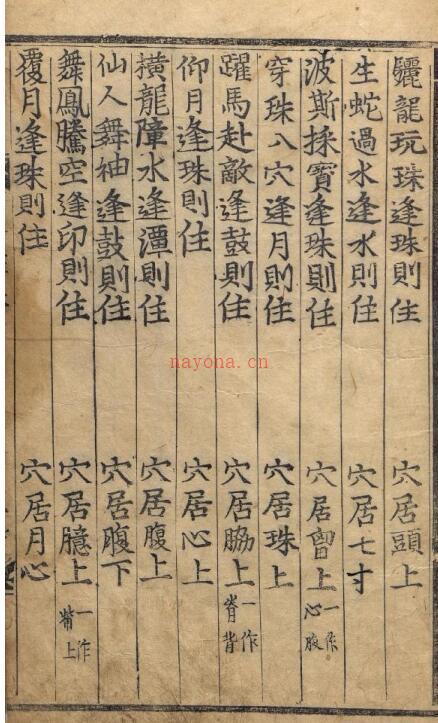 驪龍玩珠逢珠則住 穴居頭上
生蛇過水逢水則住 穴居七寸
波斯揉寶逢珠則住 穴居曾上 一作心腹
穿珠八穴逢月則住 穴居珠上
躍馬赴敵逢鼓則住 穴居脇上 一作脊背
仰月逢珠則住 穴居心上
橫龍障水逢潭則住 穴居腹上
仙人舞袖逢鼓則住 穴居腹下
舞鳳騰空逢印則住 穴居臆上 一作上
覆月逢珠則住 穴居月心
nayona.cn